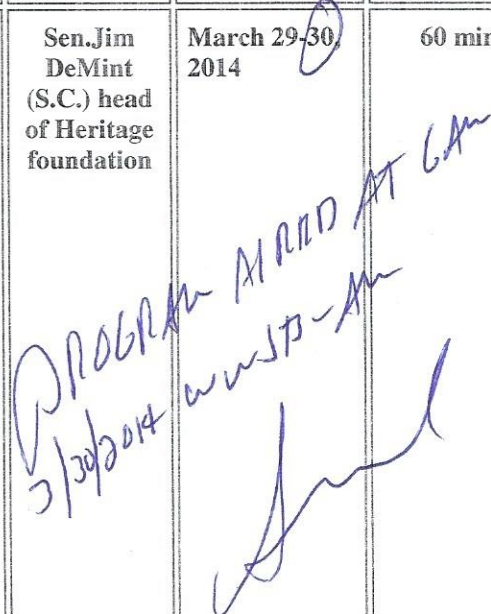 Sen.Jim
DeMint
(S.C.) head
of Heritage
foundation
March 29-30,
2014
60 min
PROGRAM AIRED AT 6AM
3/30/2014 WWJB-AM